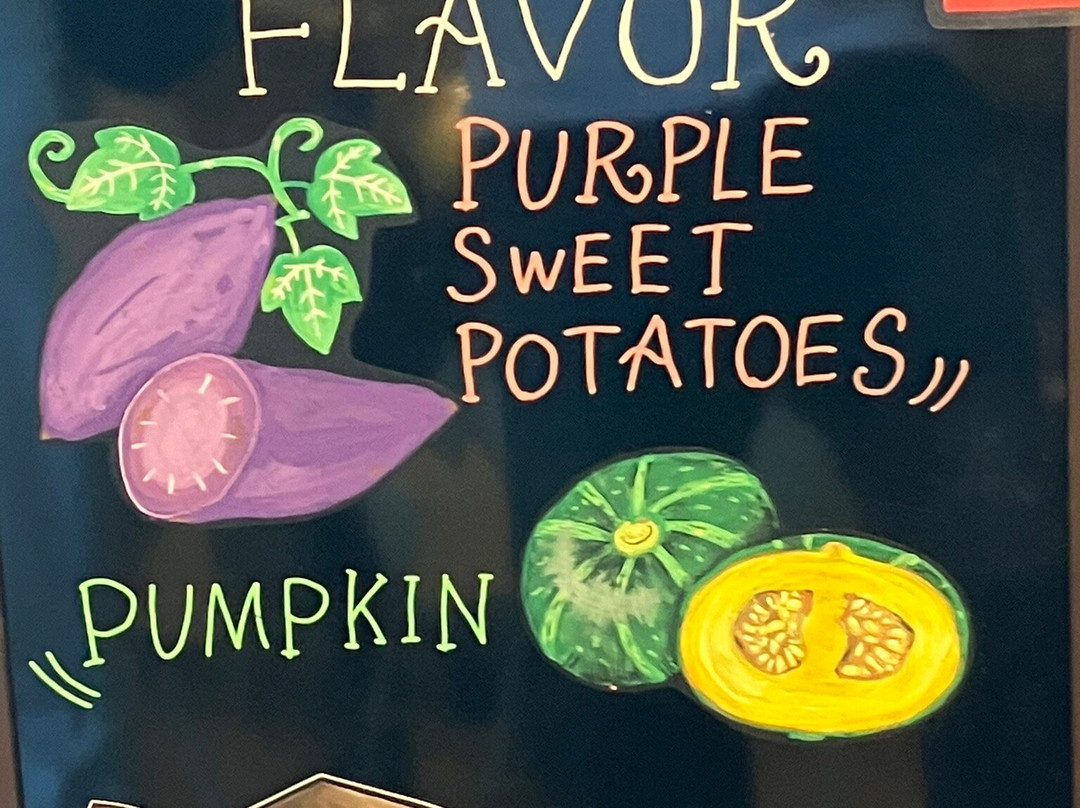 FLAVOR
PURPLE
SWEET
POTATOES
PUMPKIN